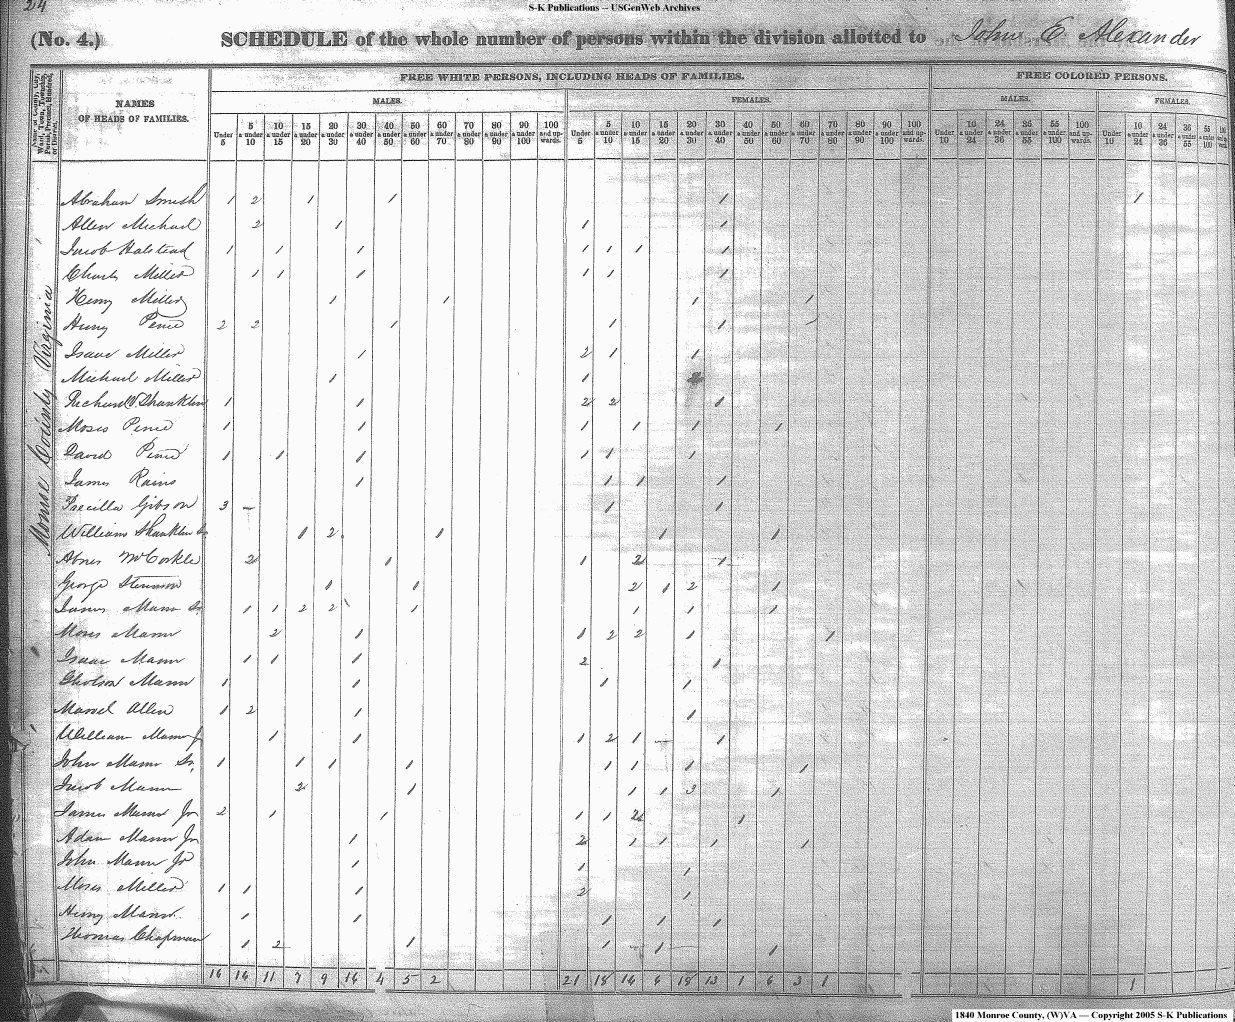 24
S-K Publications -- USGenWeb Archives
(No. 4.) SCHEDULE of the whole number of persons within the division allotted to John E Alexander
FREE WHITE PERSONS, INCLUDING HEADS OF FAMILIES. FREE COLORED PERSONS.
NAMES OF HEADS OF FAMILIES. MALES. FEMALES. MALES. FEMALES.
Under 5 5 a under 10 10 a under 15 15 a under 20 20 a under 30 30 a under 40 40 a under 50 50 a under 60 60 a under 70 70 a under 80 80 a under 90 90 a under 100 100 and up-wards. Under 5 5 a under 10 10 a under 15 15 a under 20 20 a under 30 30 a under 40 40 a under 50 50 a under 60 60 a under 70 70 a under 80 80 a under 90 90 a under 100 100 and up-wards. Under 10 10 a under 24 24 a under 36 36 a under 55 55 a under 100 100 and up-wards. Under 10 10 a under 24 24 a under 36 36 a under 55 55 a under 100 100 and up-wards.
Monroe County Virginia
Abraham Smith 1 2 1 1 1 1
Allen Michael 2 1 1 1
Jacob Halstead 1 1 1 1 1 1 1
Charles Miller 1 1 1 1 1 1
Henry Miller 1 1 1 1
Henry Pence 2 2 1 1 1
Isaac Miller 1 2 1 1
Michael Miller 1 1
Richard V. Shanklin 1 1 2 2 1
Moses Pence 1 1 1 1 1 1
David Pence 1 1 1 1 1 1
James Rains 1 1 1 1
Precilla Gibson 3 – 1 1
William Shanklin Sr 1 2 1 1 1
Abner McCorkle 2 1 1 2 1
George Stevenson 1 1 2 1 2 1
James Mann Sr 1 1 2 2 1 1 1 1
Moses Mann 2 1 1 2 2 1 1
Isaac Mann 1 1 1 2 1
Gholson Mann 1 1 1 1
Allen 1 2 1 1
William Mann Jr 1 1 1 2 1 – 1
John Mann Sr. 1 1 1 1 1 1 1 1
Jacob Mann 2 1 1 1 3 1
James Mann Jr 2 1 1 1 1 2 1
Adam Mann Jr 1 2 1 1 1 1
John Mann Jr 1 1 1
Moses Miller 1 1 1 2 1
Henry Mann 1 1 1 1 1
Thomas Chapman 1 2 1 1 1 1
16 16 11 7 9 16 4 5 2 21 18 16 6 18 13 1 6 3 1 1
1840 Monroe County, (W)VA — Copyright 2005 S-K Publications